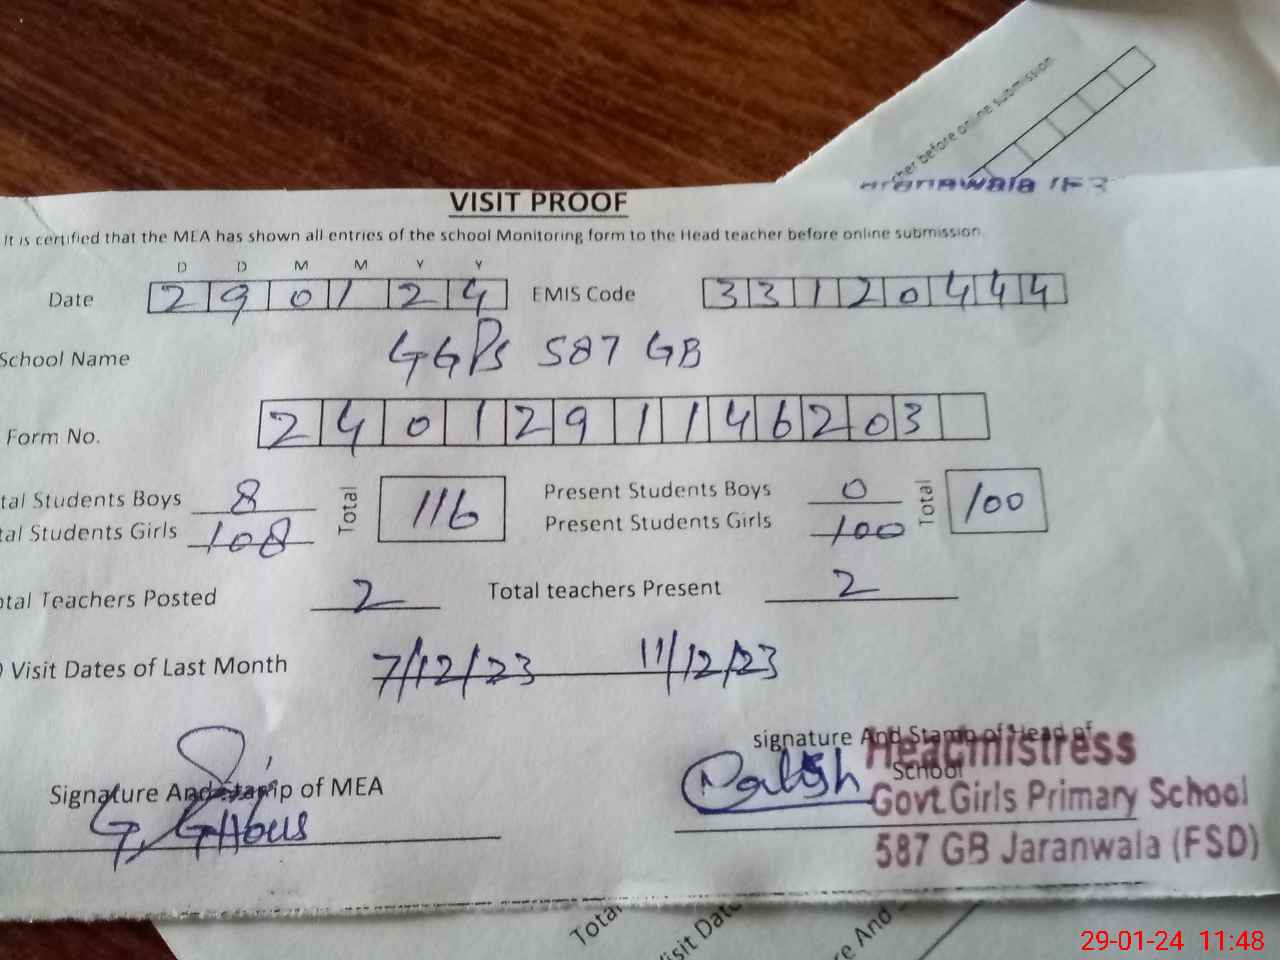 cher before online submission
VISIT PROOF
It is certified that the MEA has shown all entries of the school Monitoring form to the Head teacher before online submission
D D M M Y Y
Date 29 01 24 EMIS Code 33120444
School Name GGPS 587 GB
Form No. 2401291146203
tal Students Boys 8 Total 116 Present Students Boys 0 Total 100
tal Students Girls 108 Present Students Girls 100
otal Teachers Posted 2 Total teachers Present 2
) Visit Dates of Last Month 7/12/23 11/12/23
signature And Stamp of Head of School
Signature And Stamp of MEA
G. GHous
Headmistress
Govt. Girls Primary School
587 GB Jaranwala (FSD)
Total
isit Date
re And
29-01-24 11:48